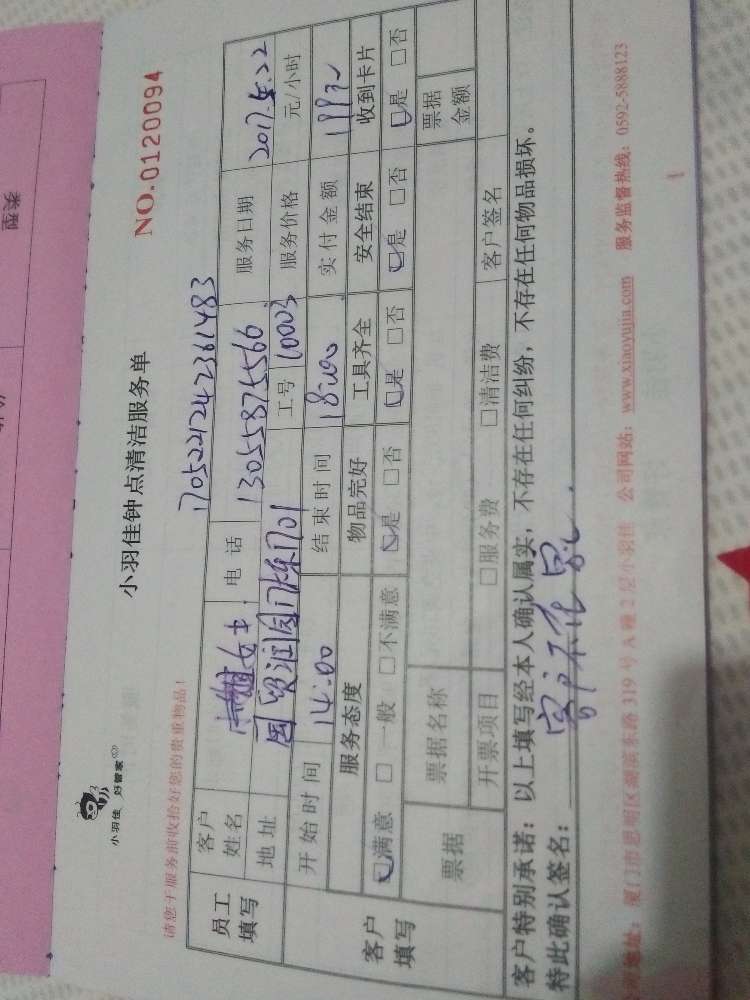 类型
小羽佳 好管家
小羽佳钟点清洁服务单
NO.0120094
请您于服务前收拾好您的贵重物品！
1705221242361483
员工填写
客户姓名 女士 电话 13055875566 服务日期 2017.5.22
地址 国贸润园 1701 工号 10003 服务价格 元/小时
客户填写
开始时间 14:00 结束时间 18:00 实付金额 199元
服务态度 物品完好 工具齐全 安全结束 收到卡片
☑满意 □一般 □不满意 ☑是 □否 ☑是 □否 ☑是 □否 ☑是 □否
票据 票据名称 票据金额
开票项目 □服务费 □清洁费 客户签名
客户特别承诺：以上填写经本人确认属实，不存在任何纠纷，不存在任何物品损坏。
特此确认签名： 客户不在
地址：厦门市思明区湖滨东路319号A幢2层小羽佳 公司网站：www.xiaoyujia.com 服务监督热线：0592-5888123